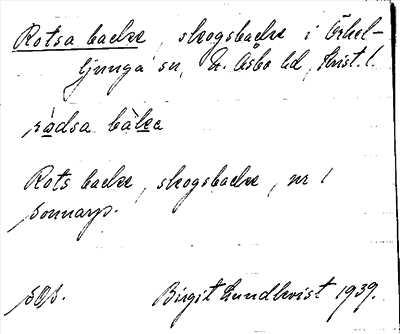 Rotsa backe, skogsbacke i Örkel-
ljunga sn, N. Åsbo hd, Krist. l.
rɷdsa bàkca
Rots backe, skogsbacke, nr 1
Sonnarp.
Birgit Lundkvist 1939.